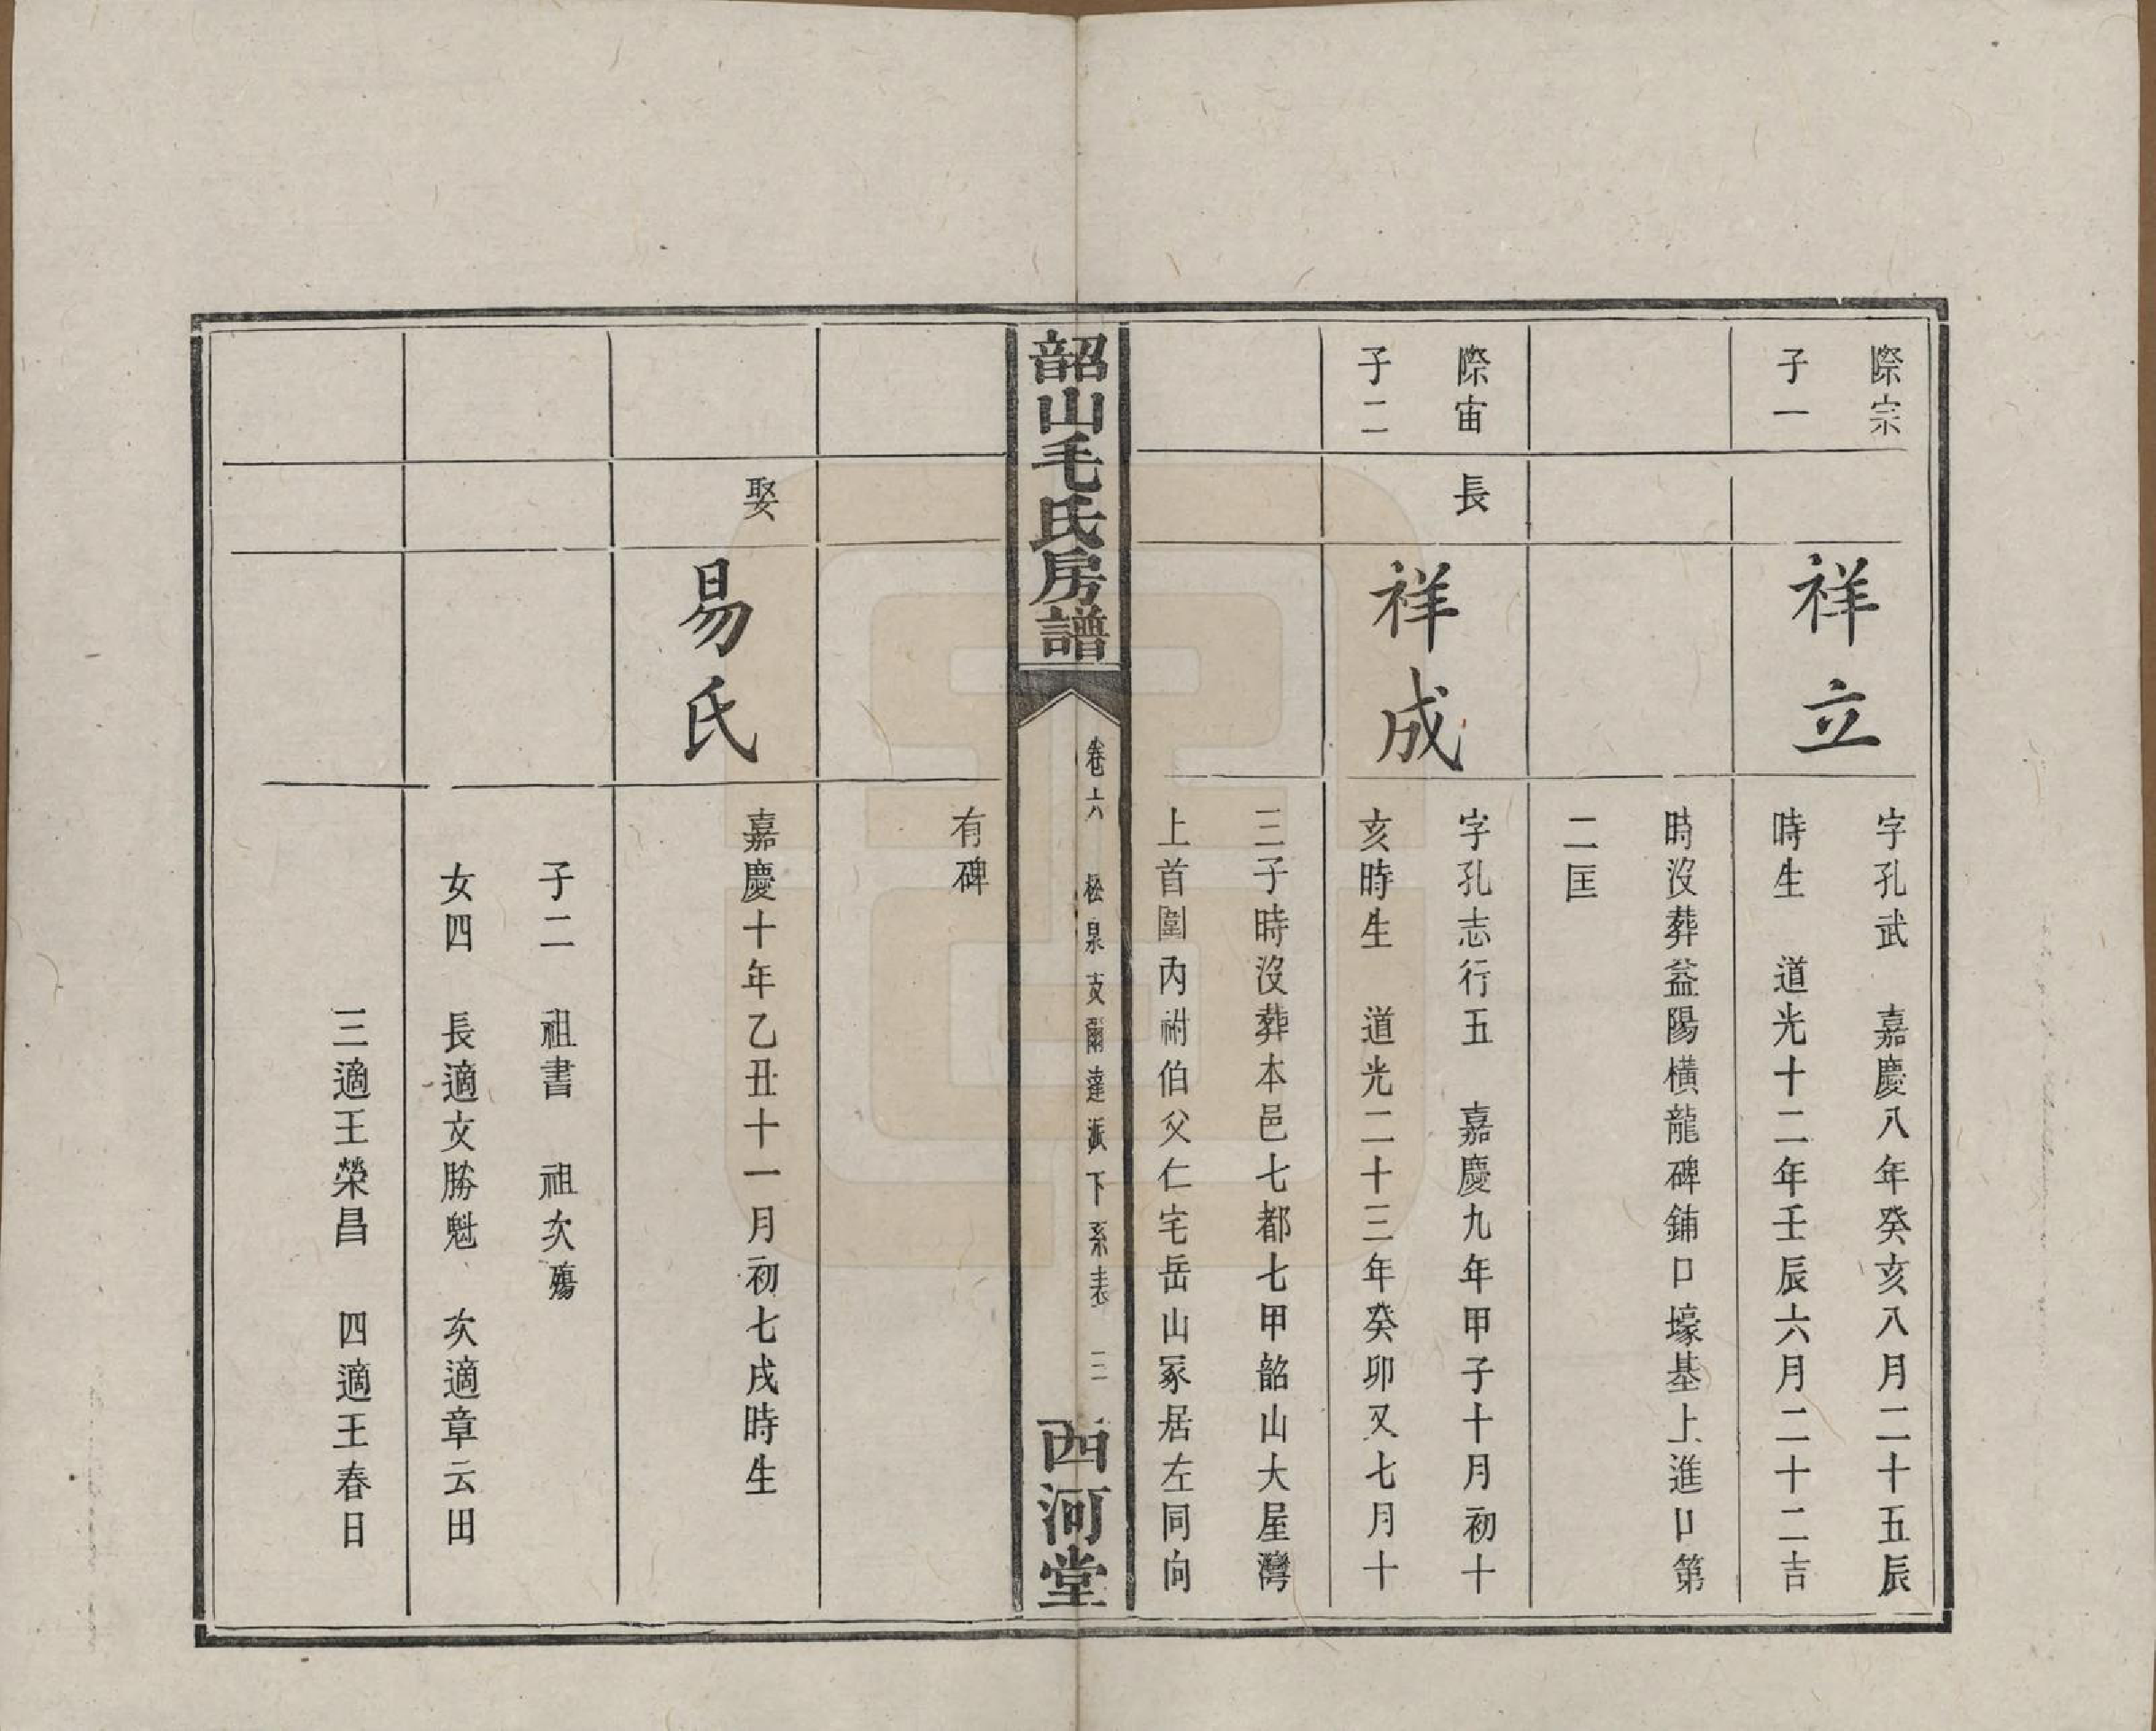 際宗
子一
祥立
字孔武　嘉慶八年癸亥八月二十五辰
時生　道光十二年壬辰六月二十二吉
時沒葬益陽橫龍碑鋪口壕基上進口第
二匡
際宙
子二
長
祥成
字孔志行五　嘉慶九年甲子十月初十
亥時生　道光二十三年癸卯又七月十
三子時沒葬本邑七都七甲韶山大屋灣
上首圍內祔伯父仁宅岳山冢居左同向
韶山毛氏房譜
卷六　松泉支爾達派下系表　三
西河堂
有碑
娶
易氏
嘉慶十年乙丑十一月初七戌時生
子二　祖書　祖次殤
女四　長適文勝魁　次適章云田
三適王榮昌　四適王春日